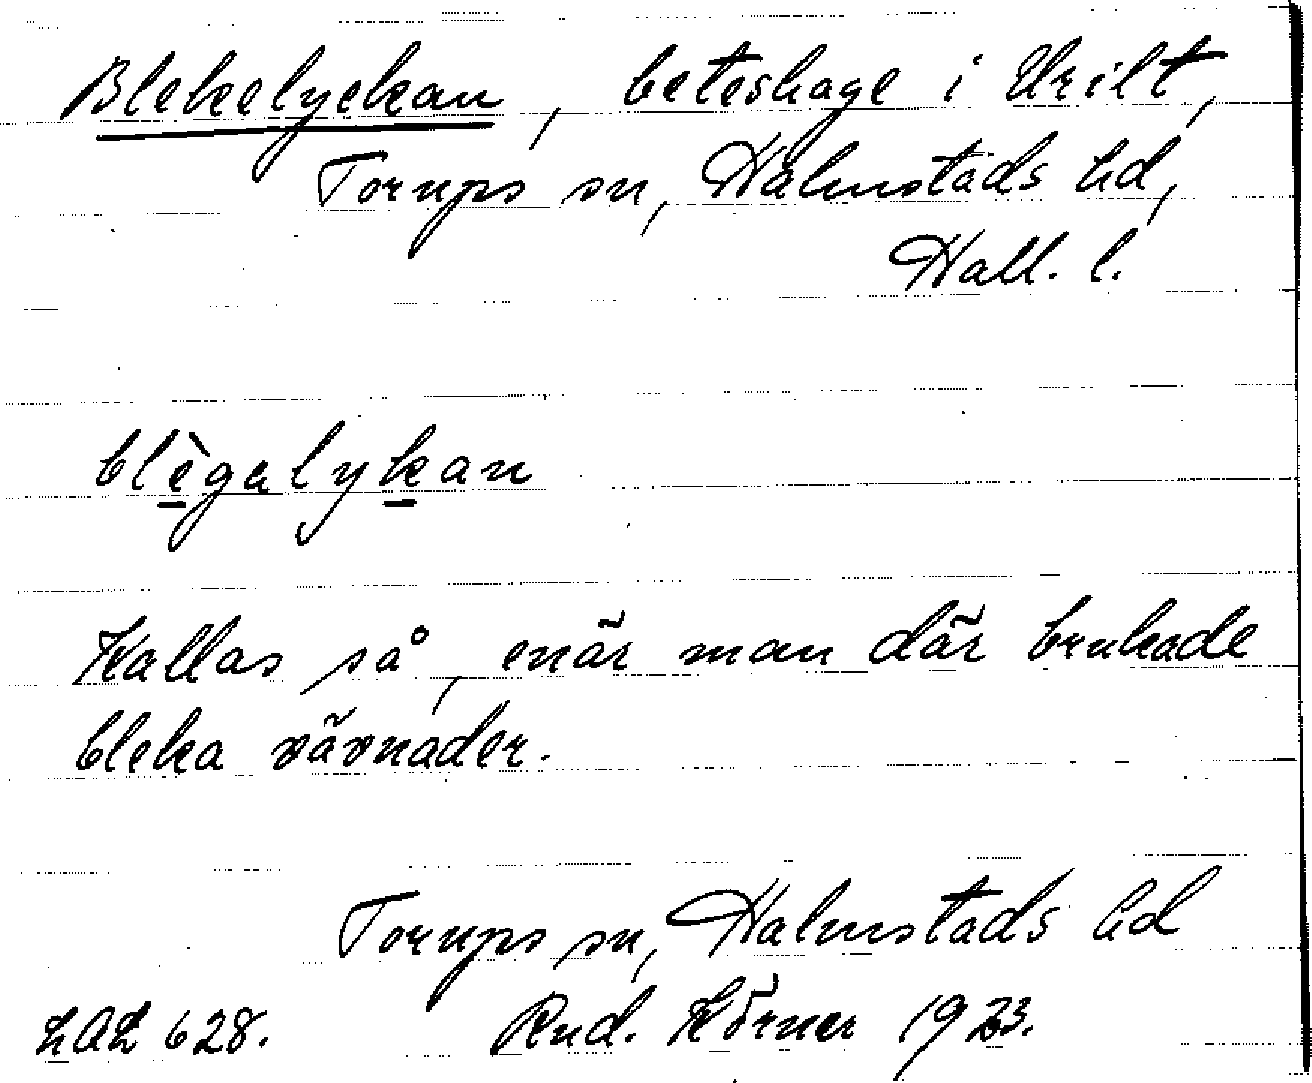 Blekelyckan, beteshage i Vrilt,
Torups sn, Halmstads hd,
Hall. l.
blègalykan
Kallas så, enär man där brukade
bleka vävnader.
Torups sn, Halmstads hd
LAL 628. Rud. Körner 1923.